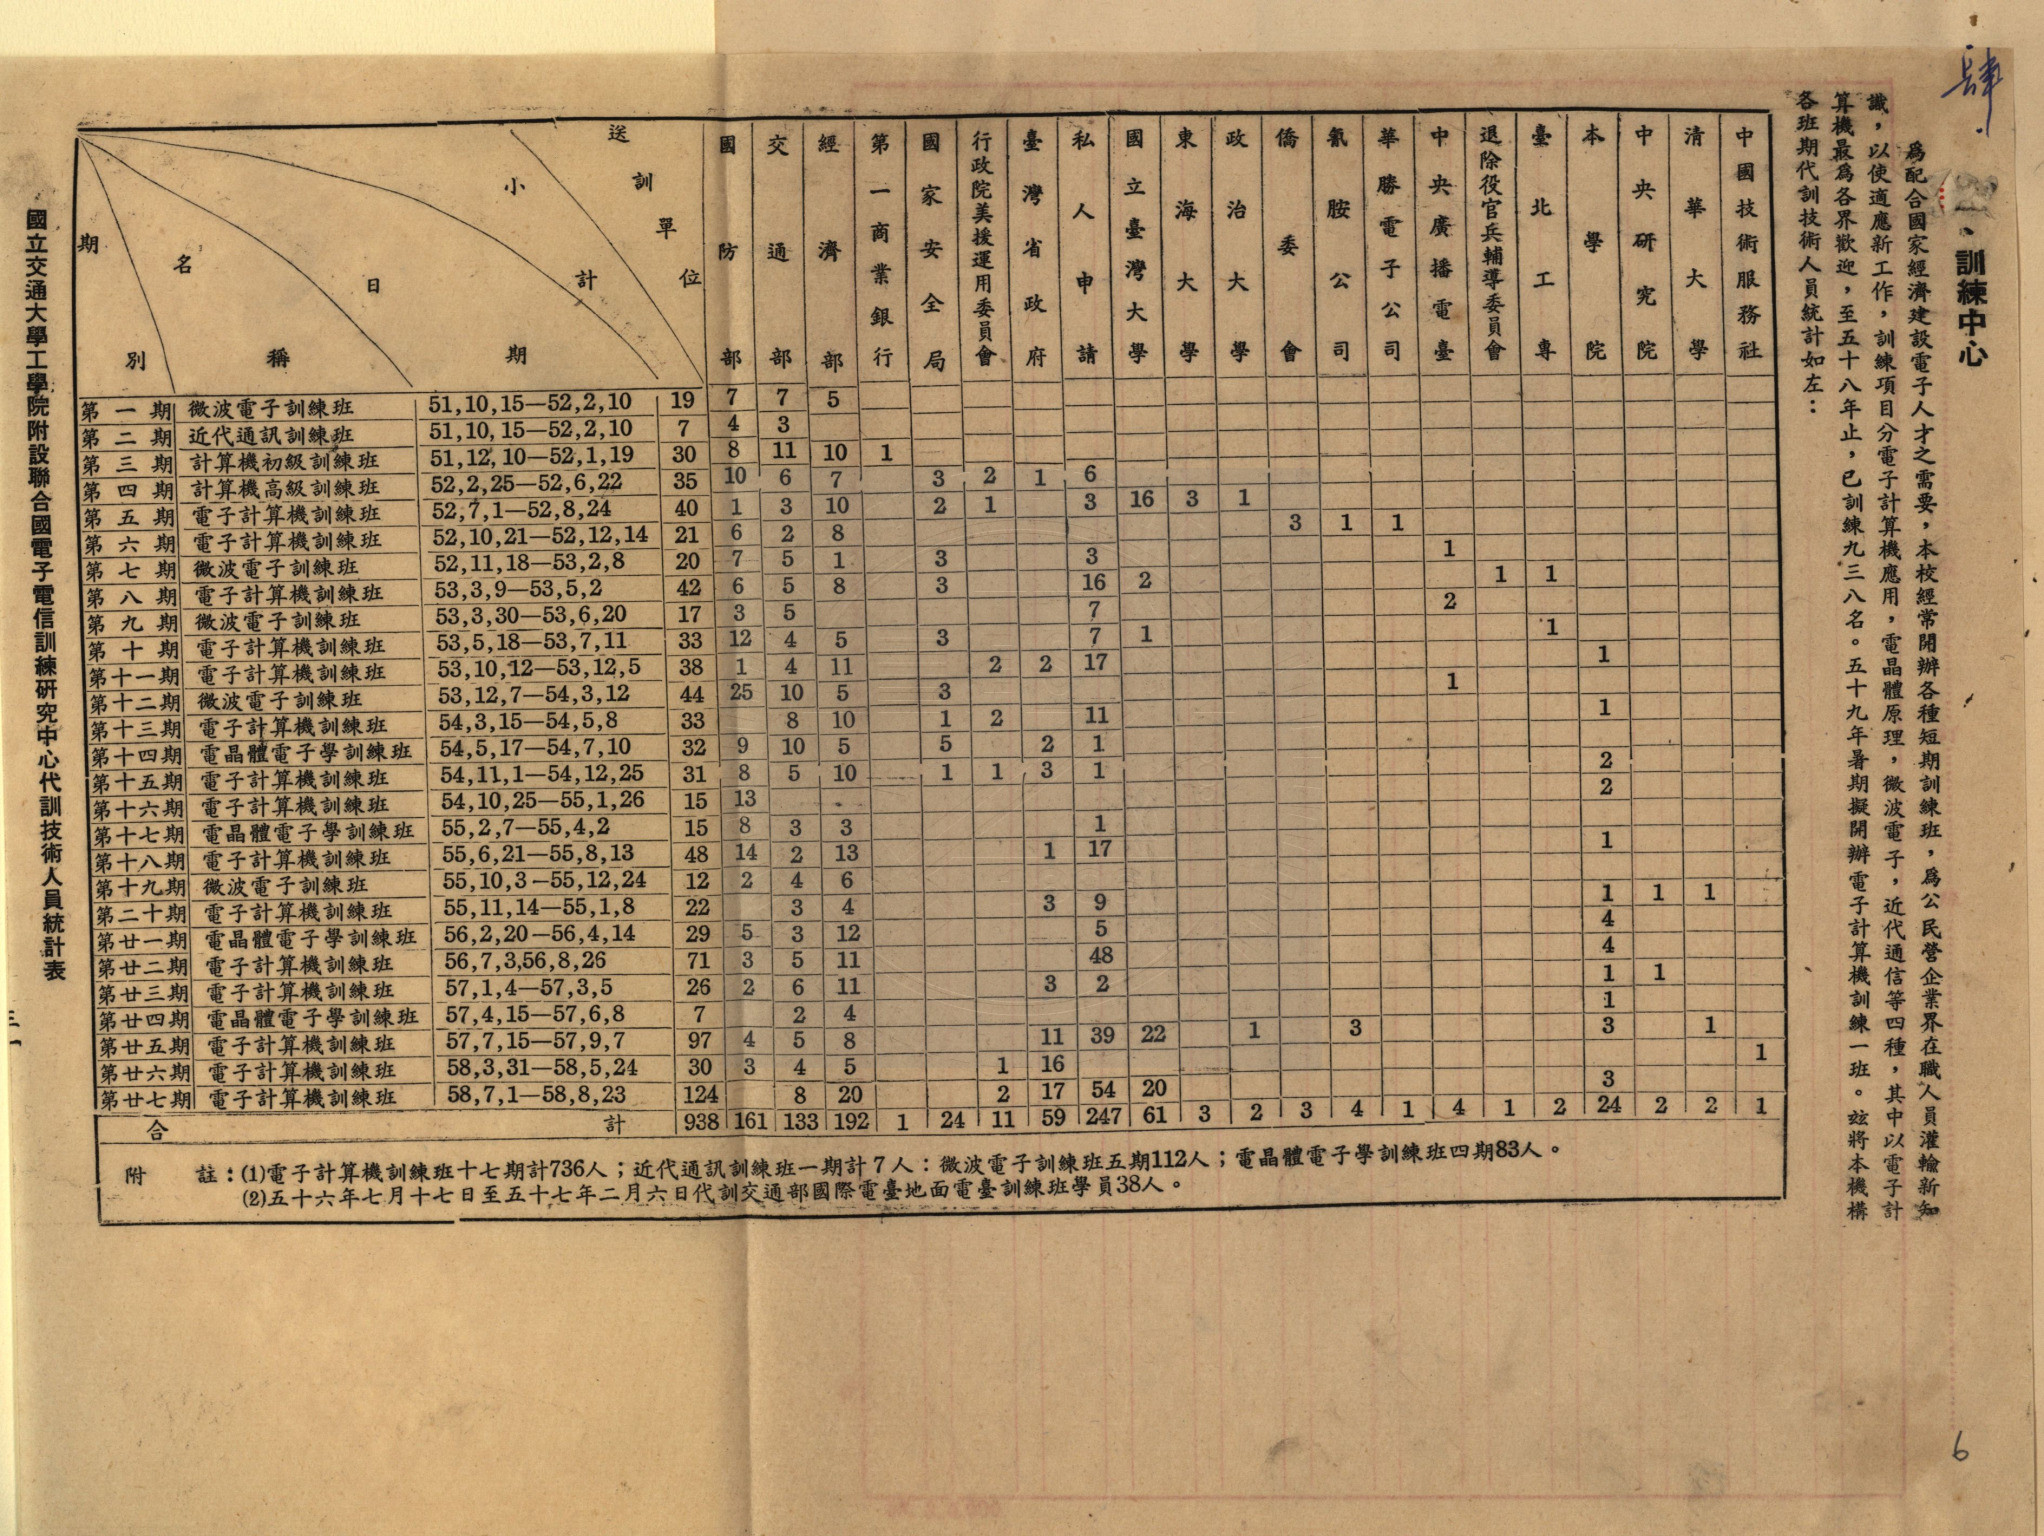 肆
一、訓練中心
為配合國家經濟建設電子人才之需要，本校經常開辦各種短期訓練班，為公民營企業界在職人員灌輸新知
識，以使適應新工作，訓練項目分電子計算機應用，電晶體原理，微波電子，近代通信等四種，其中以電子計
算機最為各界歡迎，至五十八年止，已訓練九三八名。五十九年暑期擬開辦電子計算機訓練一班。玆將本機構
各班期代訓技術人員統計如左：
國立交通大學工學院附設聯合國電子電信訓練研究中心代訓技術人員統計表
期別 名稱 日期 小計 送訓單位 國防部 交通部 經濟部 第一商業銀行 國家安全局 行政院美援運用委員會 臺灣省政府 私人申請 國立臺灣大學 東海大學 政治大學 僑委會 氰胺公司 華勝電子公司 中央廣播電臺 退除役官兵輔導委員會 臺北工專 本學院 中央研究院 清華大學 中國技術服務社
第一期 微波電子訓練班 51,10,15—52,2,10 19 7 7 5
第二期 近代通訊訓練班 51,10,15—52,2,10 7 4 3
第三期 計算機初級訓練班 51,12,10—52,1,19 30 8 11 10 1
第四期 計算機高級訓練班 52,2,25—52,6,22 35 10 6 7 3 2 1 6
第五期 電子計算機訓練班 52,7,1—52,8,24 40 1 3 10 2 1 3 16 3 1
第六期 電子計算機訓練班 52,10,21—52,12,14 21 6 2 8 3 1 1
第七期 微波電子訓練班 52,11,18—53,2,8 20 7 5 1 3 3 1
第八期 電子計算機訓練班 53,3,9—53,5,2 42 6 5 8 3 16 2 1 1
第九期 微波電子訓練班 53,3,30—53,6,20 17 3 5 7 2
第十期 電子計算機訓練班 53,5,18—53,7,11 33 12 4 5 3 7 1 1
第十一期 電子計算機訓練班 53,10,12—53,12,5 38 1 4 11 2 2 17 1
第十二期 微波電子訓練班 53,12,7—54,3,12 44 25 10 5 3 1
第十三期 電子計算機訓練班 54,3,15—54,5,8 33 8 10 1 2 11 1
第十四期 電晶體電子學訓練班 54,5,17—54,7,10 32 9 10 5 5 2 1
第十五期 電子計算機訓練班 54,11,1—54,12,25 31 8 5 10 1 1 3 1 2
第十六期 電子計算機訓練班 54,10,25—55,1,26 15 13 2
第十七期 電晶體電子學訓練班 55,2,7—55,4,2 15 8 3 3 1
第十八期 電子計算機訓練班 55,6,21—55,8,13 48 14 2 13 1 17 1
第十九期 微波電子訓練班 55,10,3—55,12,24 12 2 4 6
第二十期 電子計算機訓練班 55,11,14—55,1,8 22 3 4 3 9 1 1 1
第廿一期 電晶體電子學訓練班 56,2,20—56,4,14 29 5 3 12 5 4
第廿二期 電子計算機訓練班 56,7,3,56,8,26 71 3 5 11 48 4
第廿三期 電子計算機訓練班 57,1,4—57,3,5 26 2 6 11 3 2 1 1
第廿四期 電晶體電子學訓練班 57,4,15—57,6,8 7 2 4 1
第廿五期 電子計算機訓練班 57,7,15—57,9,7 97 4 5 8 11 39 22 1 3 3 1
第廿六期 電子計算機訓練班 58,3,31—58,5,24 30 3 4 5 1 16 1
第廿七期 電子計算機訓練班 58,7,1—58,8,23 124 8 20 2 17 54 20 3
合計 938 161 133 192 1 24 11 59 247 61 3 2 3 4 1 4 1 2 24 2 2 1
附註：(1)電子計算機訓練班十七期計736人；近代通訊訓練班一期計7人：微波電子訓練班五期112人；電晶體電子學訓練班四期83人。
(2)五十六年七月十七日至五十七年二月六日代訓交通部國際電臺地面電臺訓練班學員38人。
6